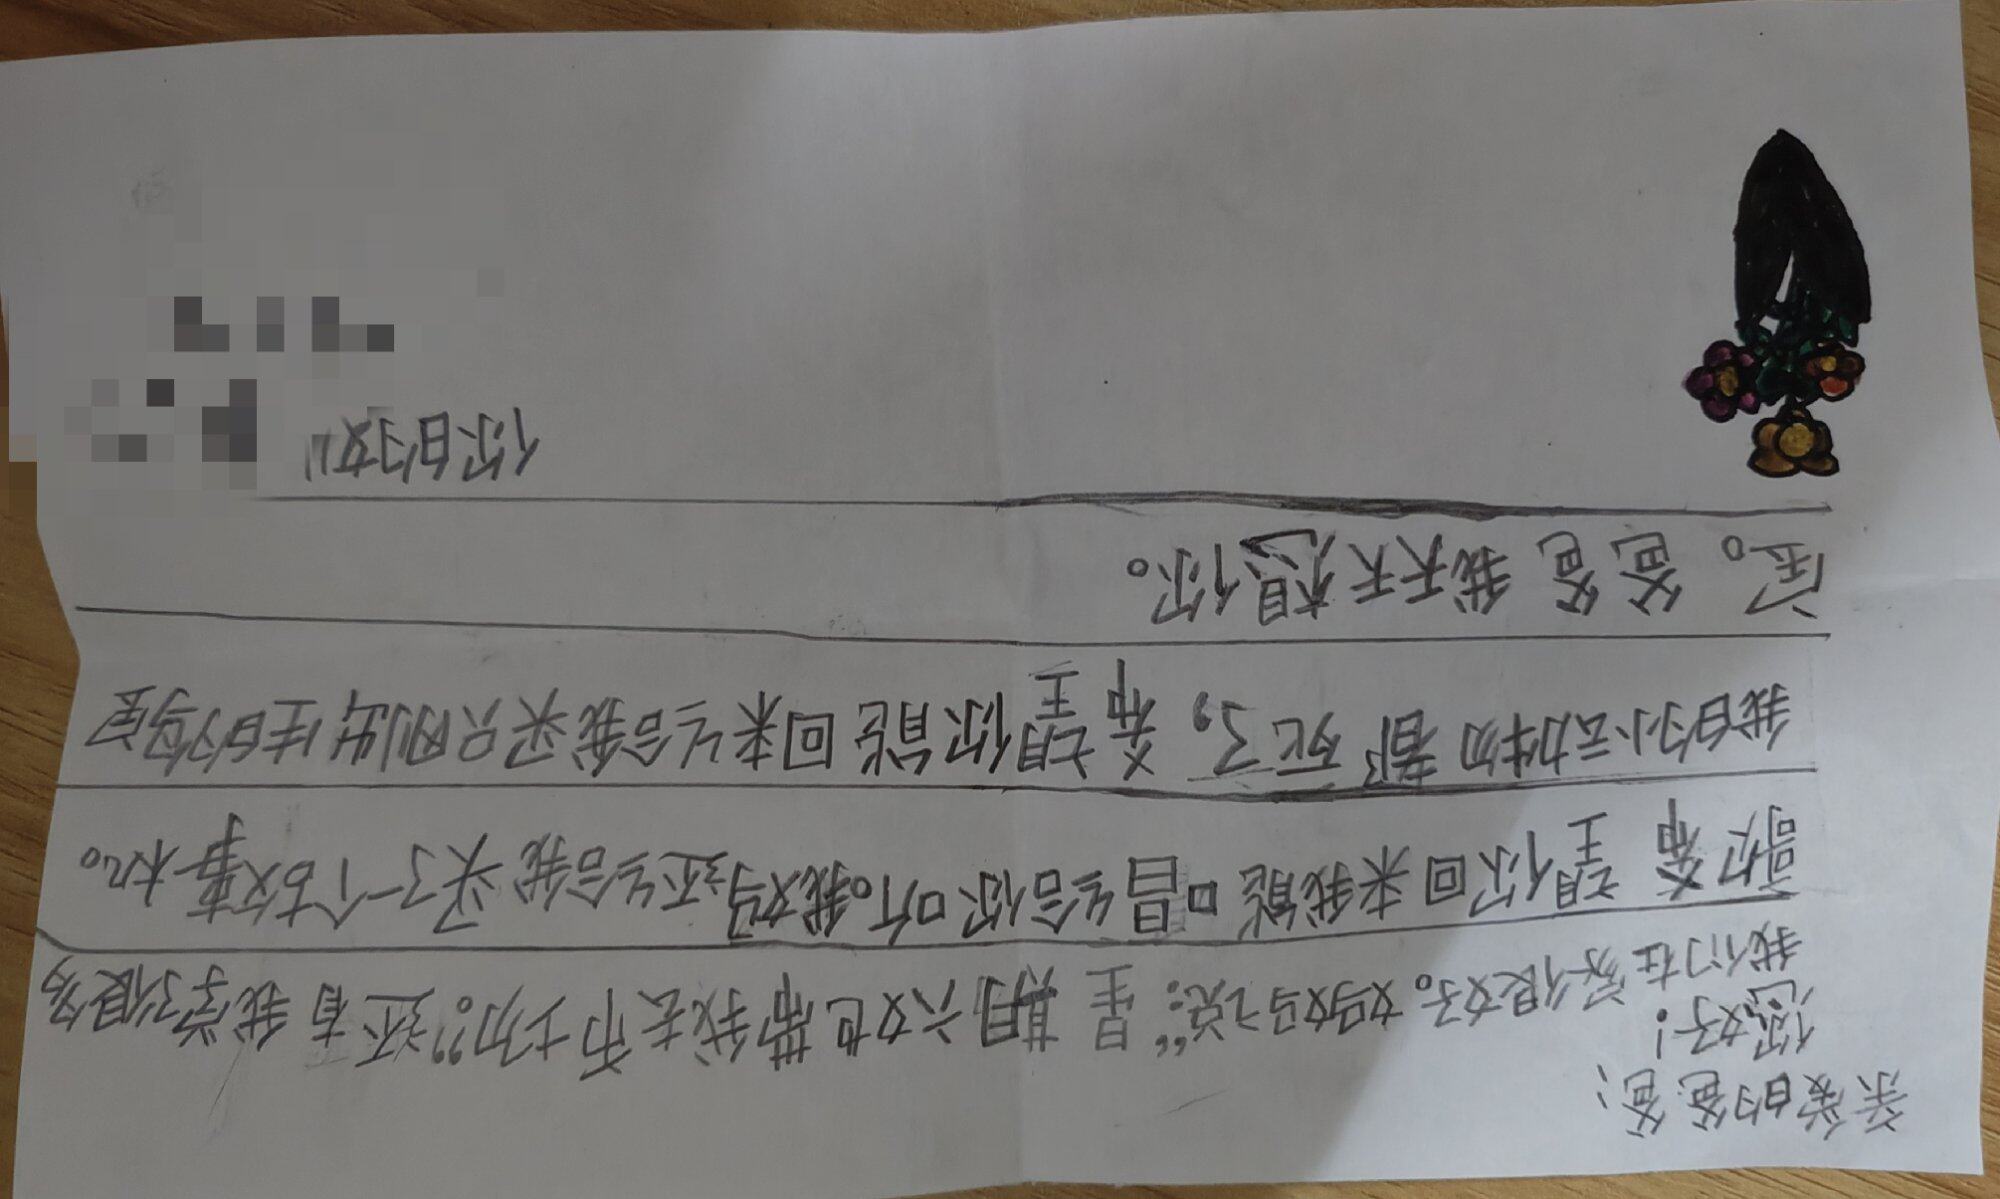 亲爱的爸爸：
您好！
我们在家很好。妈妈说：“星期六她带我去市场？”还有我学了很多
歌希望你回来我能唱给你听。我妈还给我买了一个故事本。
我的小动物都死了，希望你能回来给我买只刚出生的宝
宝。爸爸我天天想你。
你的女儿